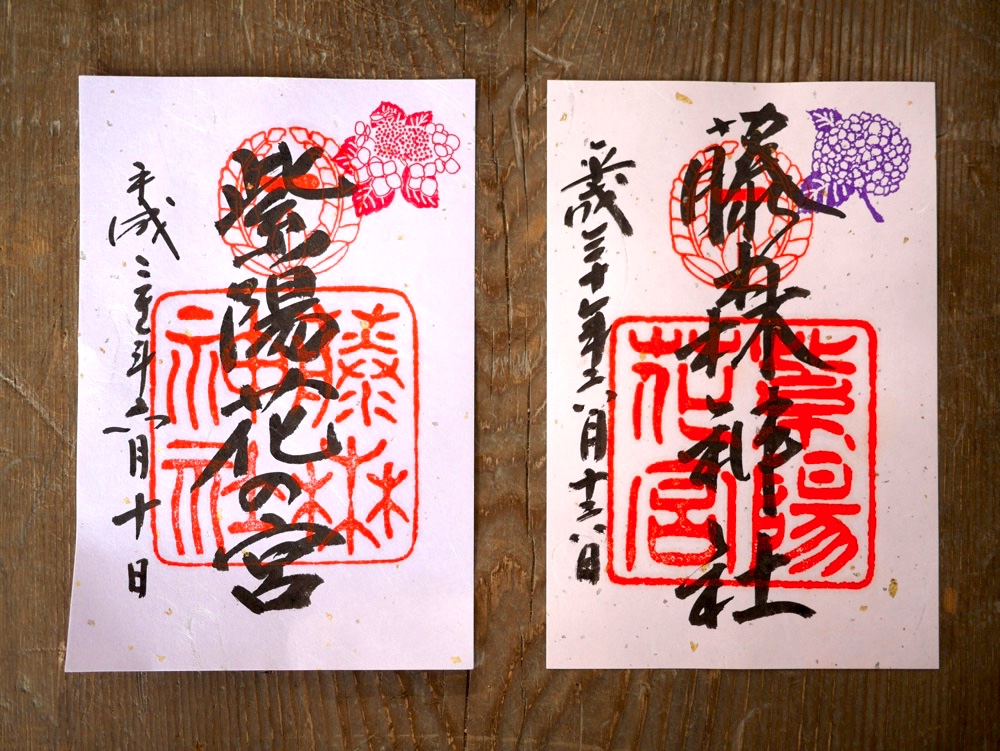 紫陽花の宮
藤森
神社
平成年六月十日
藤森神社
紫陽
花宮
平成三十年六月十六日